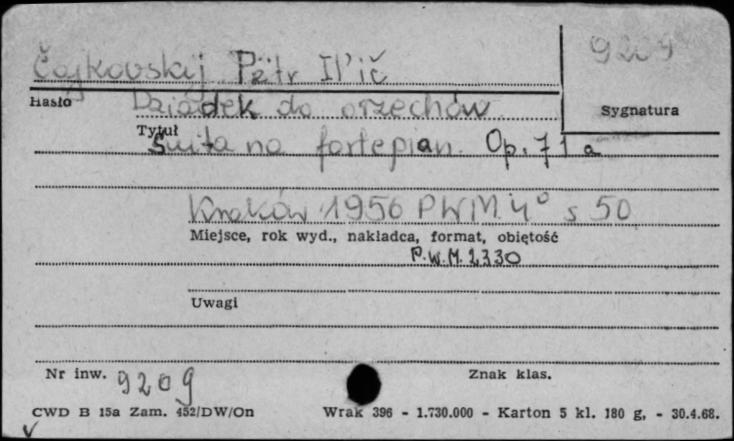 9209
Čajkovskij Pëtr Il'ič
Hasło
Dziadek do orzechów
Sygnatura
Tytuł
Suita na fortepian. Op. 71 a
Kraków 1956 PWM. 4° s 50
Miejsce, rok wyd., nakładca, format, objętość
P.W.M. 2330
Uwagi
Nr inw. 9209
Znak klas.
CWD B 15a Zam. 452/DW/On
Wrak 396 - 1.730.000 - Karton 5 kl. 180 g. - 30.4.68.